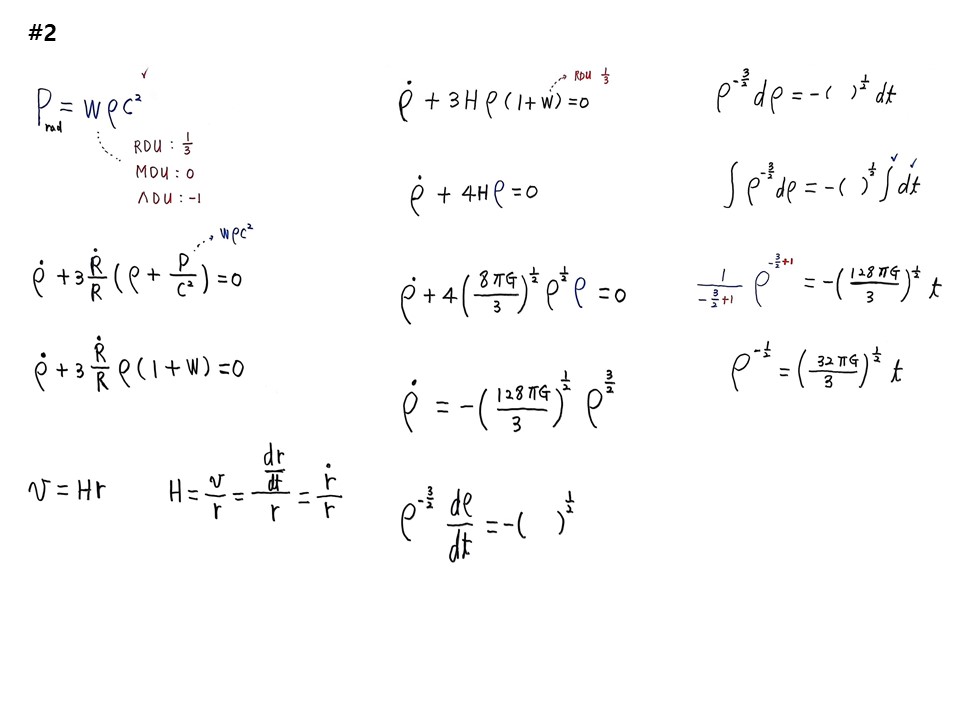 #2
P_rad = wρc² ✓
RDU : 1/3
MDU : 0
ΛDU : -1
wρc²
ρ̇ + 3 Ṙ/R (ρ + P/c²) = 0
ρ̇ + 3 Ṙ/R ρ(1 + w) = 0
v = Hr
H = v/r = (dr/dt)/r = ṙ/r
RDU 1/3
ρ̇ + 3Hρ(1 + w) = 0
ρ̇ + 4Hρ = 0
ρ̇ + 4(8πG/3)^(1/2) ρ^(1/2) ρ = 0
ρ̇ = -(128πG/3)^(1/2) ρ^(3/2)
ρ^(-3/2) dρ/dt = -( )^(1/2)
ρ^(-3/2) dρ = -( )^(1/2) dt
∫ρ^(-3/2) dρ = -( )^(1/2) ∫dt ✓ ✓
1/(-3/2+1) ρ^(-3/2+1) = -(128πG/3)^(1/2) t
ρ^(-1/2) = (32πG/3)^(1/2) t